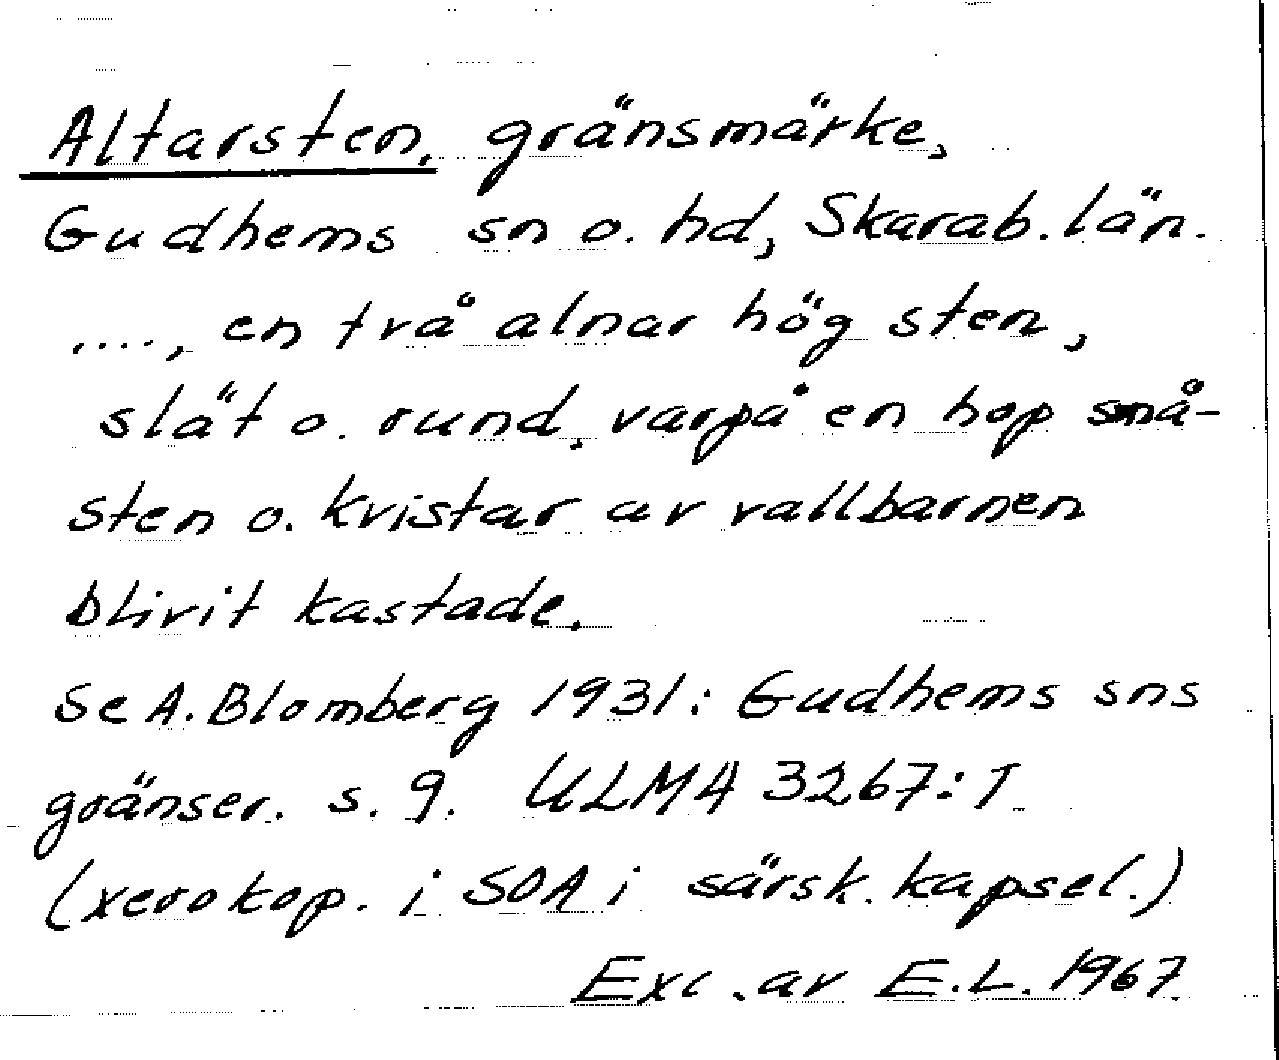 Altarsten, gränsmärke,
Gudhems sn o. hd, Skarab. län.
...., en två alnar hög sten,
slät o. rund, varpå en hop små-
sten o. kvistar av vallbarnen
blivit kastade.
Se A. Blomberg 1931: Gudhems sns
gränser. s. 9. ULMA 3267:1
(xerokop. i SOA i särsk. kapsel.)
Exc. av E.L. 1967